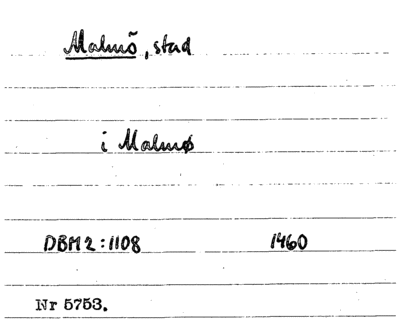 Malmö, stad
i Malmø
DBM 2:1108 1460
Nr 5753.